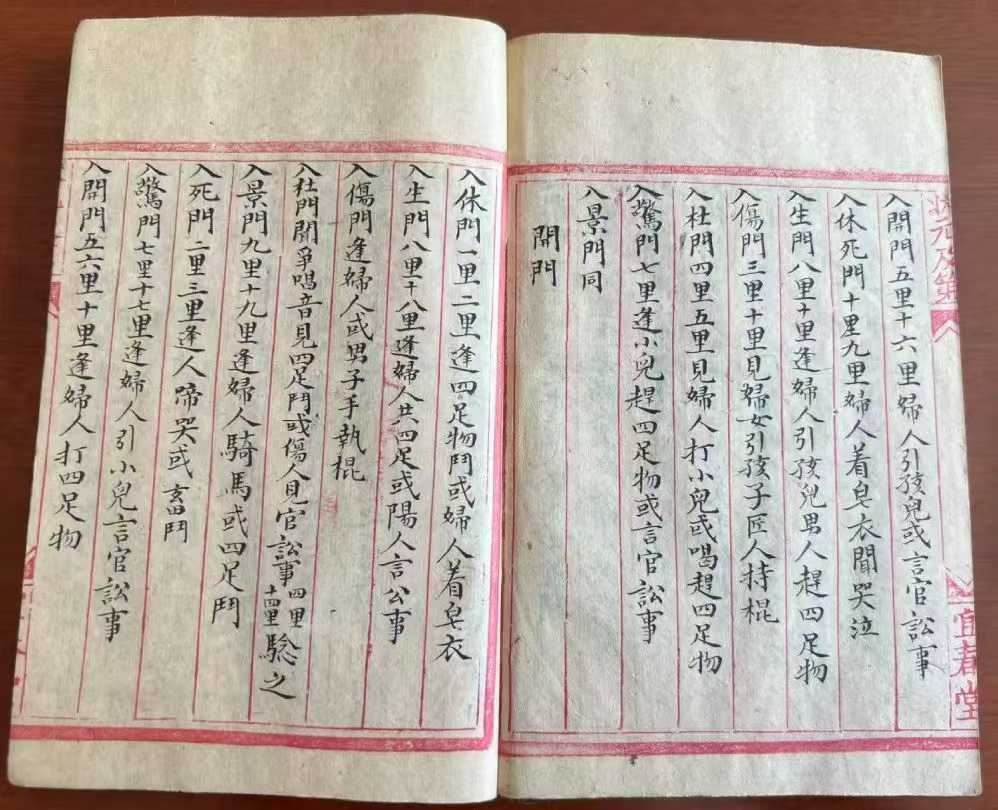 入開門五里十六里婦人引孩兒或言官訟事
入休死門十里九里婦人着皂衣聞哭泣
入生門八里十里逢婦人引孩兒男人趕四足物
入傷門三里十里見婦女引孩子匠人持棍
入杜門四里五里見婦人打小兒或喝趕四足物
入驚門七里逢小兒趕四足物或言官訟事
入景門同
開門
入休門一里二里逢四足物鬥或婦人着皂衣
入生門八里十八里逢婦人共四足或陽人言公事
入傷門逢婦人或男子手執棍
入杜門開爭唱音見四足鬥或傷人見官訟事四里十四里驗之
入景門九里十九里逢婦人騎馬或四足鬥
入死門二里三里逢人啼哭或畜鬥
入驚門七里十七里逢婦人引小兒言官訟事
入開門五六里十里逢婦人打四足物
狀元及第
宜春堂